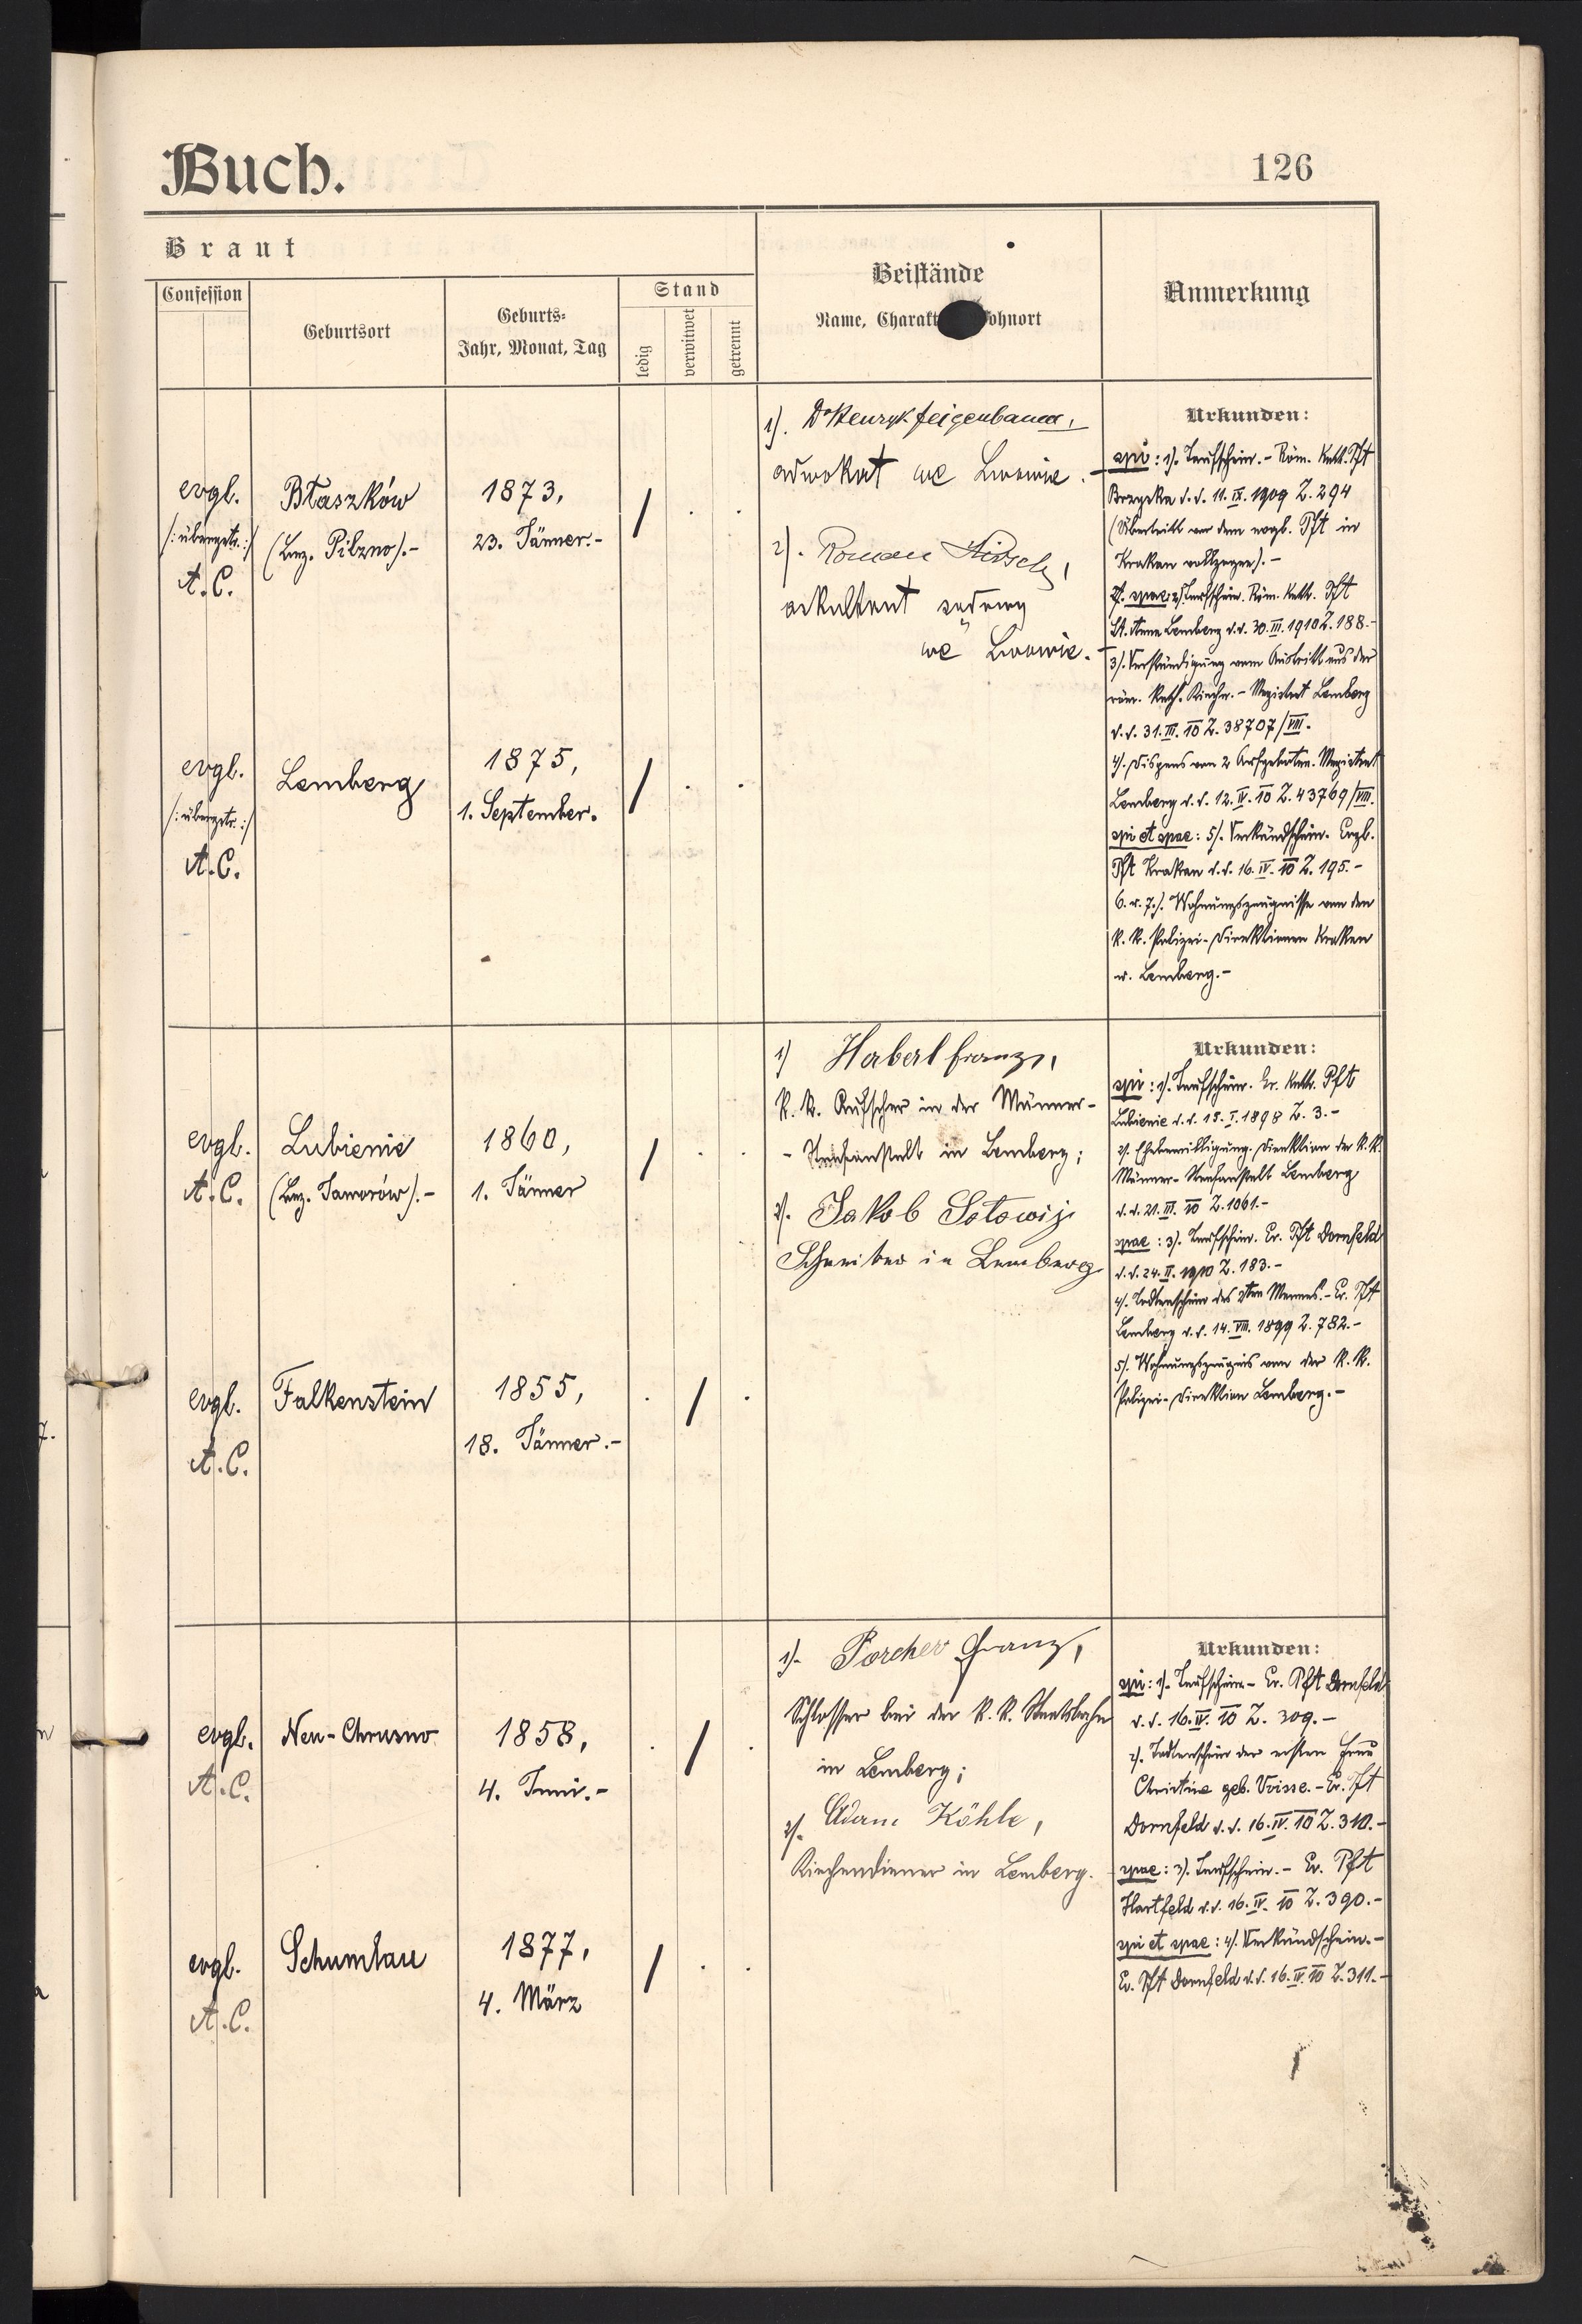 Buch.
126
Braut
Confession
Geburtsort
Geburts-
Jahr, Monat, Tag
Stand
ledig
verwitwet
getrennt
Beistände
Name, Charakt ohnort
Anmerkung
evgl.
/:übergetr.:/
A.C.
Błaszków
(Bez. Pilzno).-
1873,
23. Jänner.-
1). Dr Henryk Feigenbaum,
adwokat we Lwowie.-
2). Roman
askultant sądowy
we Lwowie.-
Urkunden:
spi: 1). Taufschein.- Röm. Kath. Pft
d.d. 11. IX. 1909 Z. 294
(Übertritt vor dem evgl. Pft in
Krakau vollzogen).-
spae: 2). Taufschein. Röm. Kath. Pft
St. Anna Lemberg d.d. 30. III. 1910 Z. 188.-
3). Verständigung vom Austritt aus der
röm. Kath. Kirche.- Magistrat Lemberg
d.d. 31. III. 10 Z. 38707/VIII.
4). Dispens von 2 Aufgeboten. Magistrat
Lemberg d.d. 12. IV. 10 Z. 43769/VIII.
spi et spae: 5). Verkündschein. Evgl.
Pft Krakau d.d. 16. IV. 10 Z. 195.-
6. u. 7.). Wohnungszeugnisse von den
k. k. Polizei-Direktionen Krakau
u. Lemberg.-
evgl.
/:übergetr.:/
A.C.
Lemberg
1875,
1. September.
evgl.
A.C.
Lubienie
(Bez. Jaworów).-
1860,
1. Jänner
1) Haberl Franz,
k. k. Aufseher in der Männer-
- Strafanstalt in Lemberg;
2). Jakob
Schreiber in Lemberg
Urkunden:
spi: 1). Taufschein. Gr. Kath. Pft
Lubienie d.d. 15. I. 1898 Z. 3.-
2). Ehebewilligung. Direktion der k. k.
Männer-Strafanstalt Lemberg
d.d. 21. III. 10 Z. 1061.-
spae: 3). Taufschein. Ev. Pft Dornfeld
d.d. 24. II. 1910 Z. 183.-
4). Todtenschein des 2ten Mannes.- Ev. Pft
Lemberg d.d. 14. VIII. 1899 Z. 782.-
5). Wohnungszeugnis von der k. k.
Polizei-Direktion Lemberg.-
evgl.
A.C.
Falkenstein
1855,
18. Jänner.-
evgl.
A.C.
Neu-Chrusno
1858,
4. Juni.-
1). Porcher Franz,
Schlosser bei der k. k. Staatsbahn
in Lemberg;
2). Adam Köhle,
Kirchendiener in Lemberg.
Urkunden:
spi: 1). Taufschein- Ev. Pft Dornfeld
d.d. 16. IV. 10 Z. 309.-
2). Todtenschein der ersten Frau
Christine geb. - Ev. Pft
Dornfeld d.d. 16. IV. 10 Z. 310.-
spae: 3). Taufschein.- Ev. Pft
Hartfeld d.d. 16. IV. 10 Z. 390.-
spi et spae: 4). Verkündschein.-
Ev. Pft Dornfeld d.d. 16. IV. 10 Z. 311.-
evgl.
A.C.
Schumlau
1877,
4. März